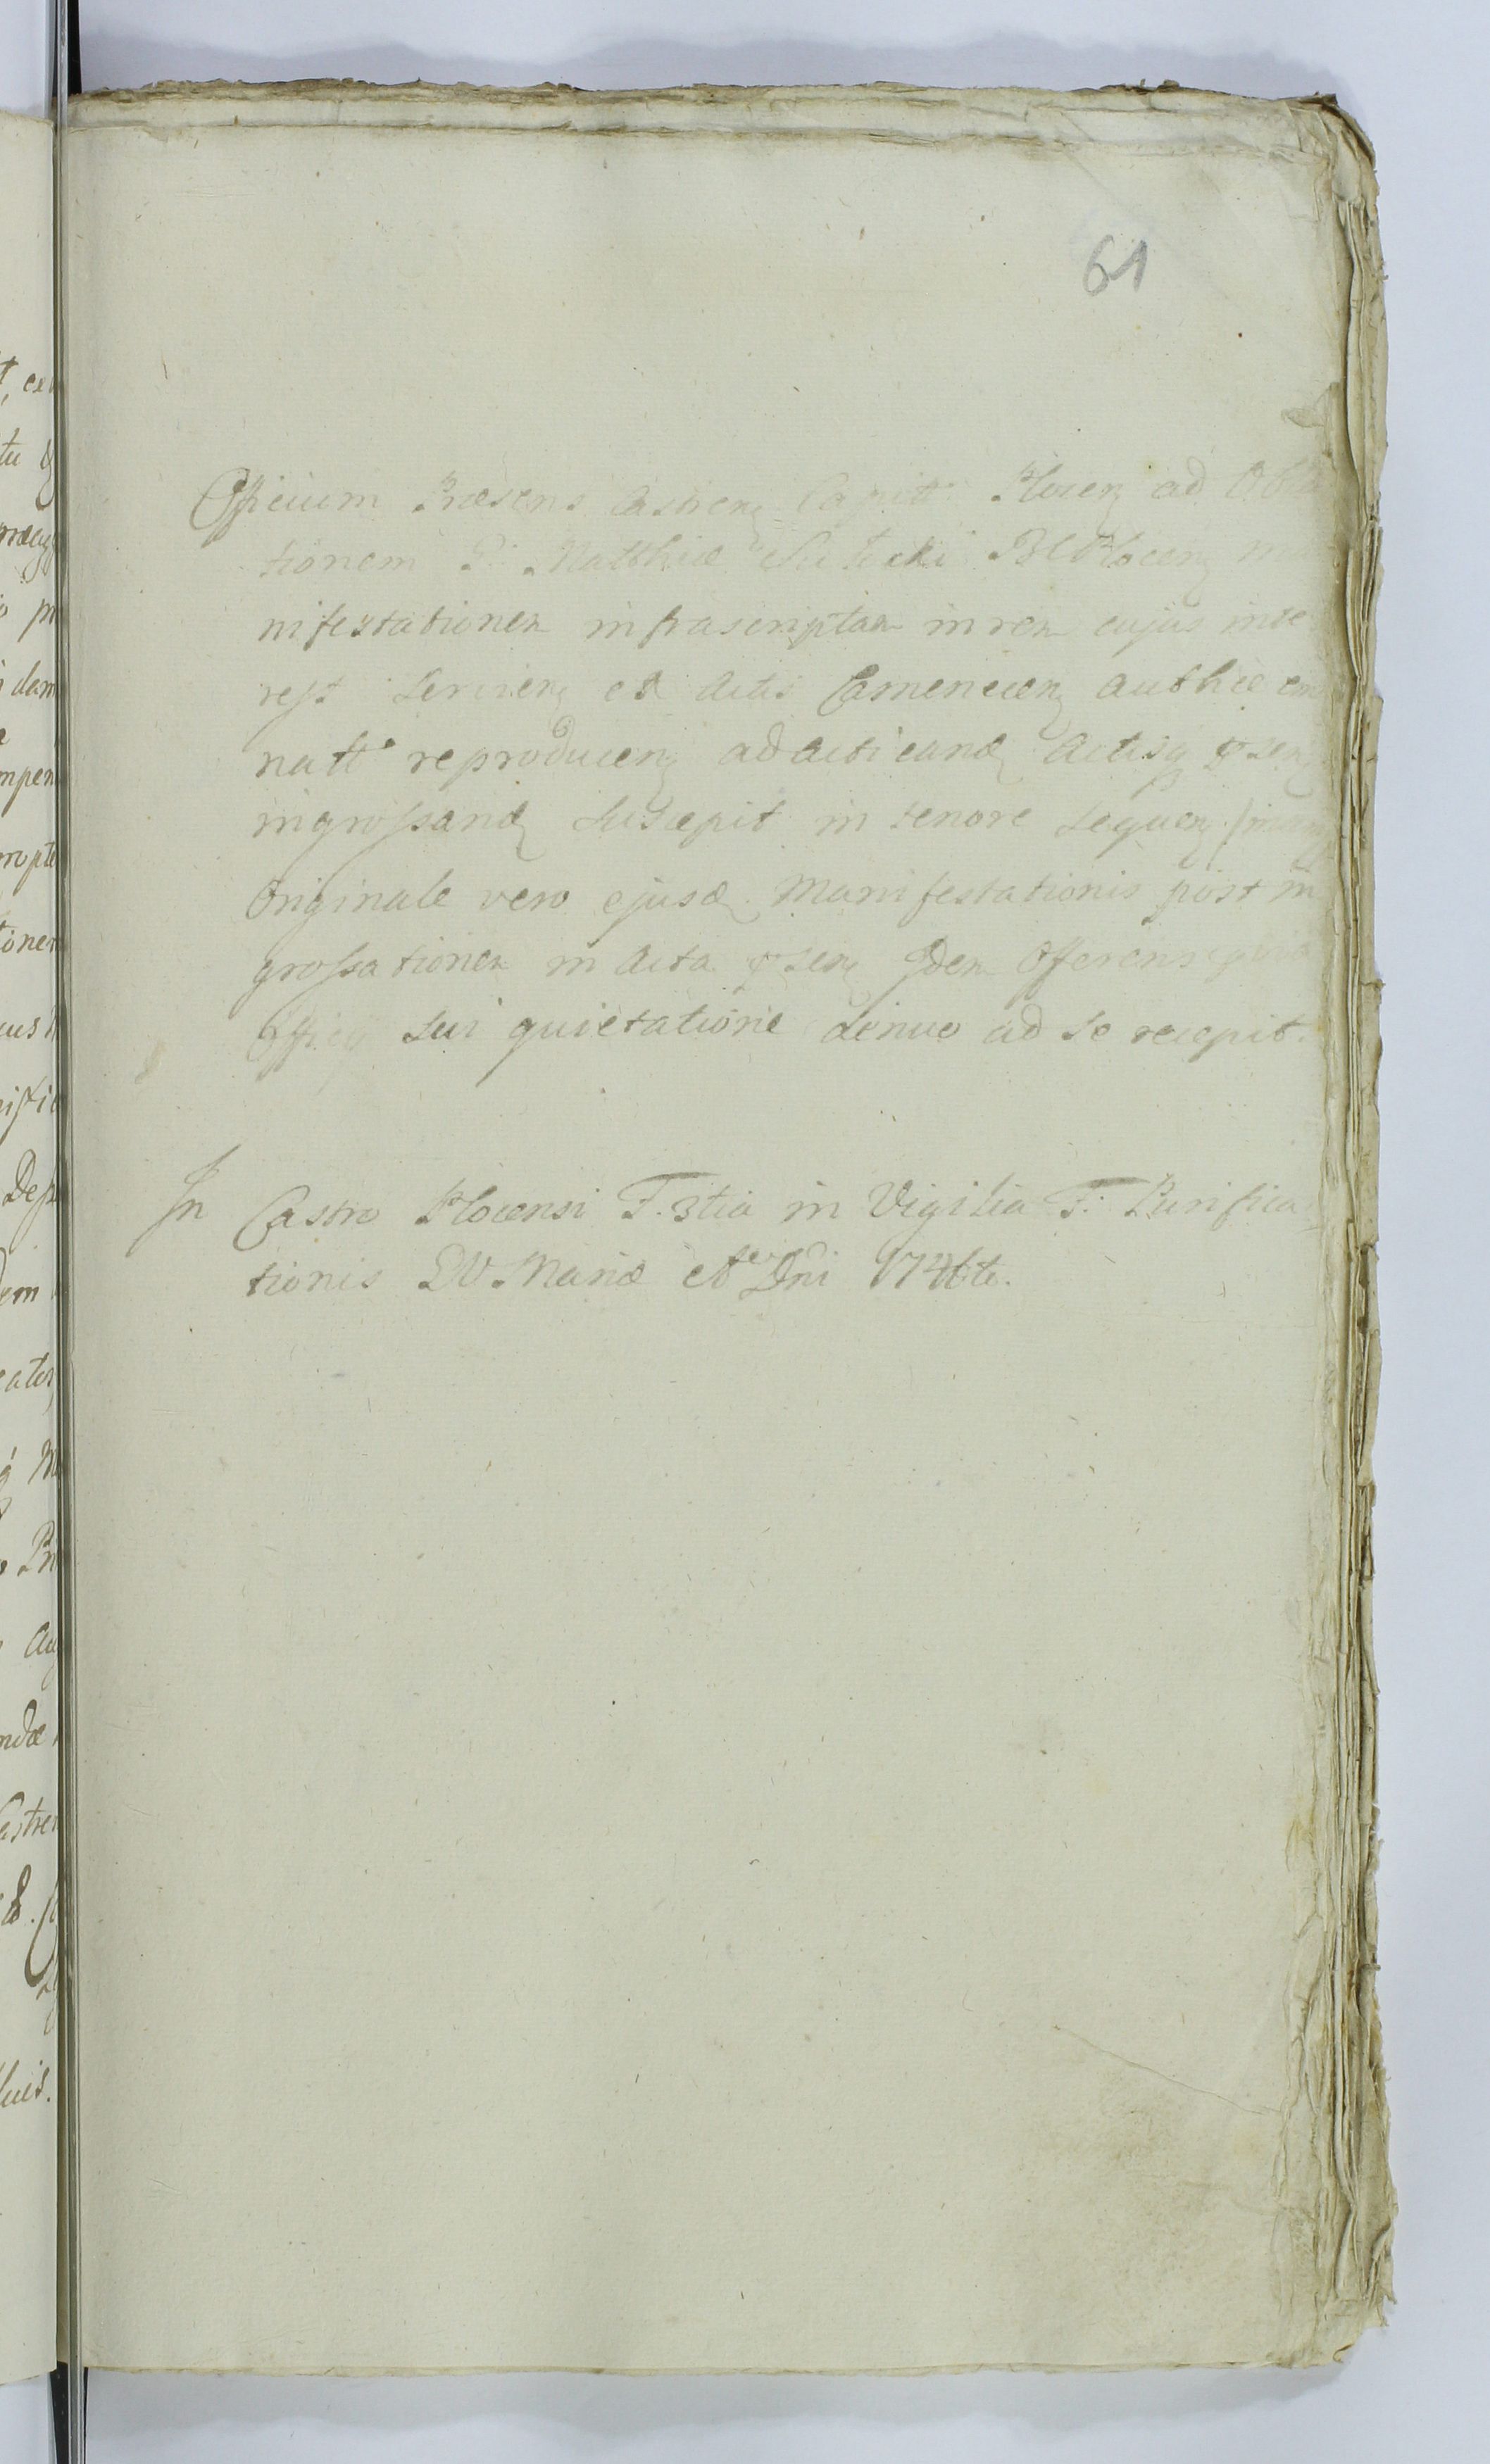 61
Officium Præsens Castren Capitt Plocen ad Obla
tionem Matthiæ Plocen ma
nifestationem infrascriptam in rem cujus inte
rest servien ex Actis Camenecen authce em
natt reproducen ad acticand Actisq pñsen
ingrossand suscepit in tenore sequen
Originale vero ejusd Manifestationis post in
grossationem in Acta pñsen Idem Offerens
Officij sui quietatione denuo ad se recepit.
In Castro Plocensi F. 3tia in Vigilia F: Purifica
tionis BV Mariæ Ao Dni 1746to.